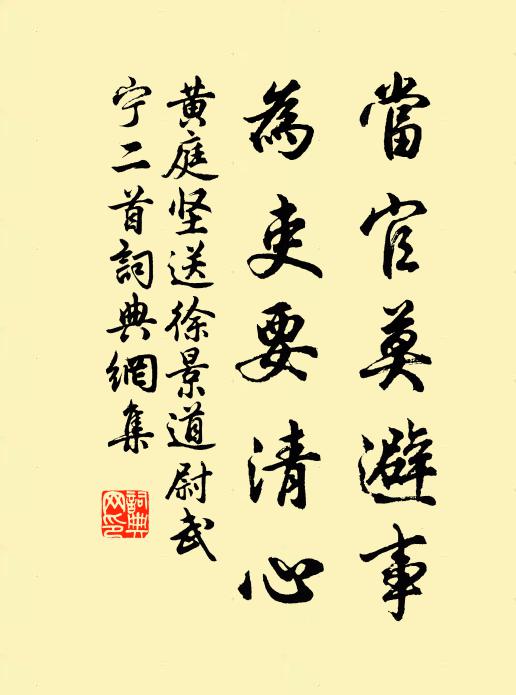 當官莫避事
為吏要清心
黄庭坚送徐景道尉武
宁二首詞典網集
詞典网印